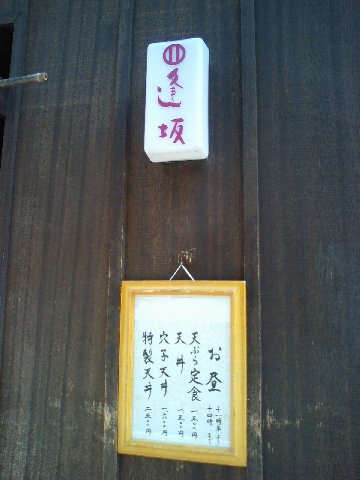 天ぷら
逢坂
お昼
十一時半より
十四時まで
天ぷら定食 一三〇〇円
天丼 一三〇〇円
穴子天丼 一六〇〇円
特製天丼 二五〇〇円